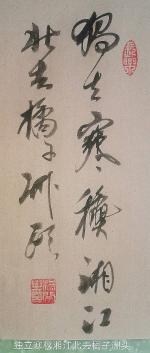 獨立寒穐湘江
北去橘子洲頭
独立寒秋湘江北去桔子洲头